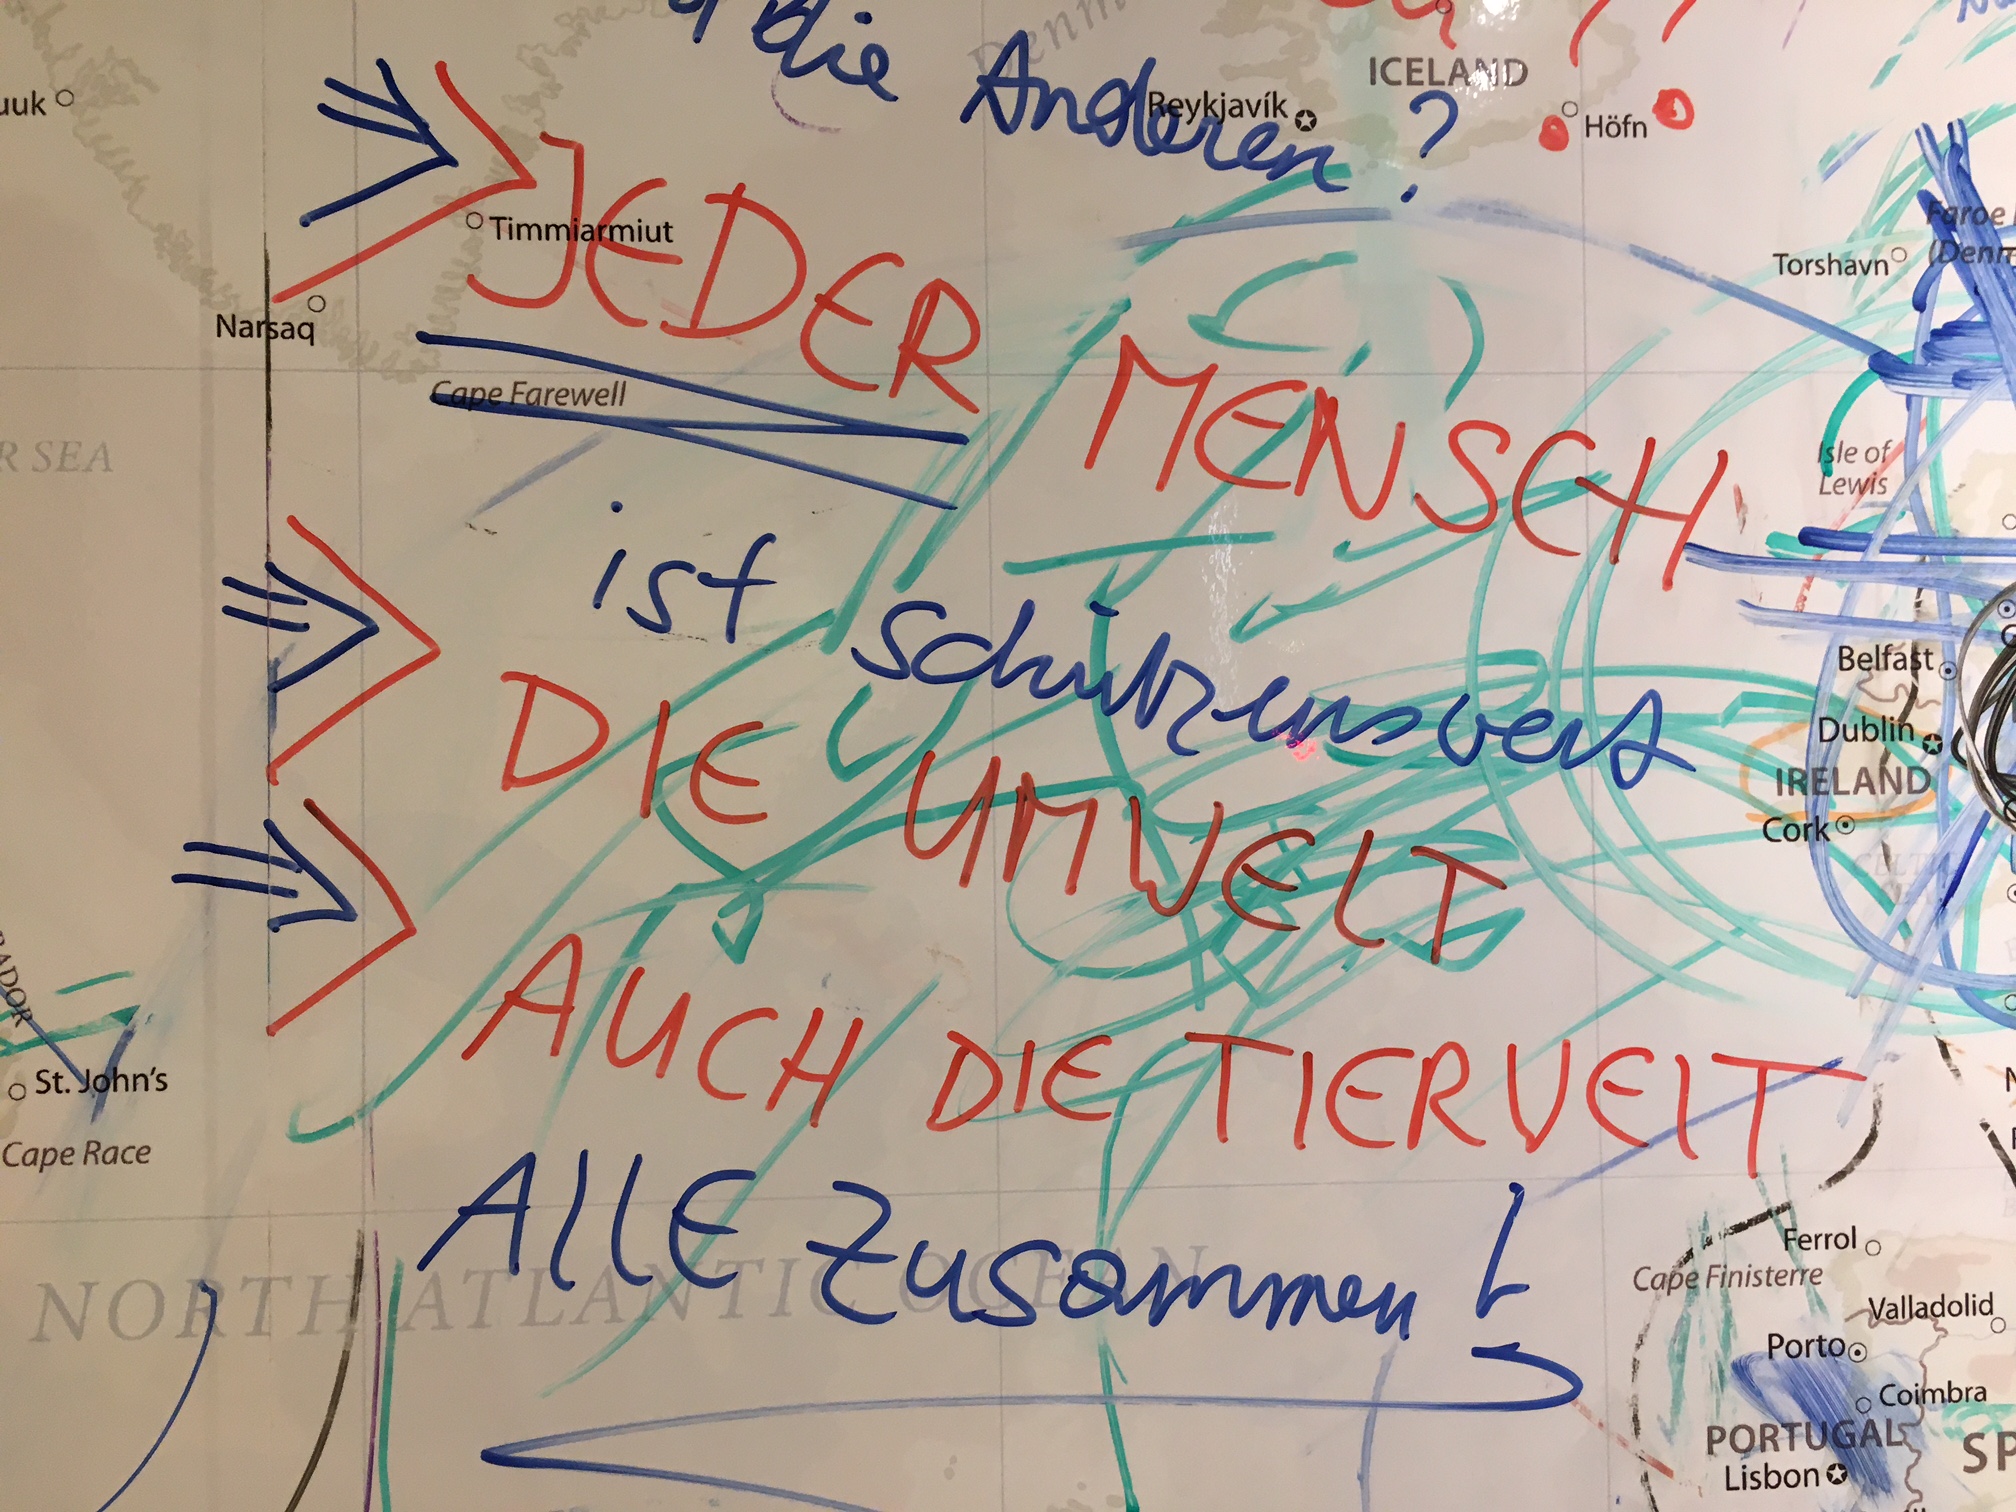 die Anderen?
ICELAND
Reykjavík
Höfn
JEDER MENSCH
Timmiarmiut
Torshavn
Narsaq
Cape Farewell
Isle of
Lewis
ist schützenswert
Belfast
DIE UMWELT
Dublin
IRELAND
Cork
AUCH DIE TIERWELT
St. John's
Cape Race
ALLE Zusammen!
NORTH ATLANTIC OCEAN
Ferrol
Cape Finisterre
Valladolid
Porto
Coimbra
PORTUGAL
Lisbon